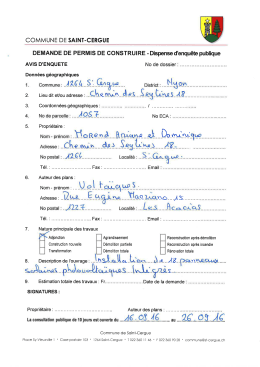 COMMUNE DE SAINT-CERGUE
DEMANDE DE PERMIS DE CONSTRUIRE - Dispense d'enquête publique
AVIS D'ENQUETE No de dossier :
Données géographiques
1. Commune : 1264 St Cergue District : Nyon
2. Lieu dit et/ou adresse : Chemin des Seylines 18
3. Coordonnées géographiques : /
4. No de parcelle : 1057 No ECA :
5. Propriétaire :
Nom - prénom : Morend Ariane et Dominique
Adresse : Chemin des Seylines 18
No postal : 1264 Localité : St Cergue
Tél. : Fax : Email :
6. Auteur des plans :
Nom - prénom : Voltaïques
Adresse : Rue Eugène Marziano 15
No postal : 1227 Localité : Les Acacias
Tél. : Fax : Email :
7. Nature principale des travaux
Adjonction Agrandissement Reconstruction après démolition
Construction nouvelle Démolition partielle Reconstruction après incendie
Transformation Démolition totale Rénovation totale
8. Description de l'ouvrage : Installation de 18 panneaux
solaires photovoltaïques intégrés
9. Estimation totale des travaux : Fr. Date de la demande :
SIGNATURES :
Propriétaire : Auteur des plans :
La consultation publique de 10 jours est ouverte du 16.09.16 au 26.09.16
Commune de Saint-Cergue